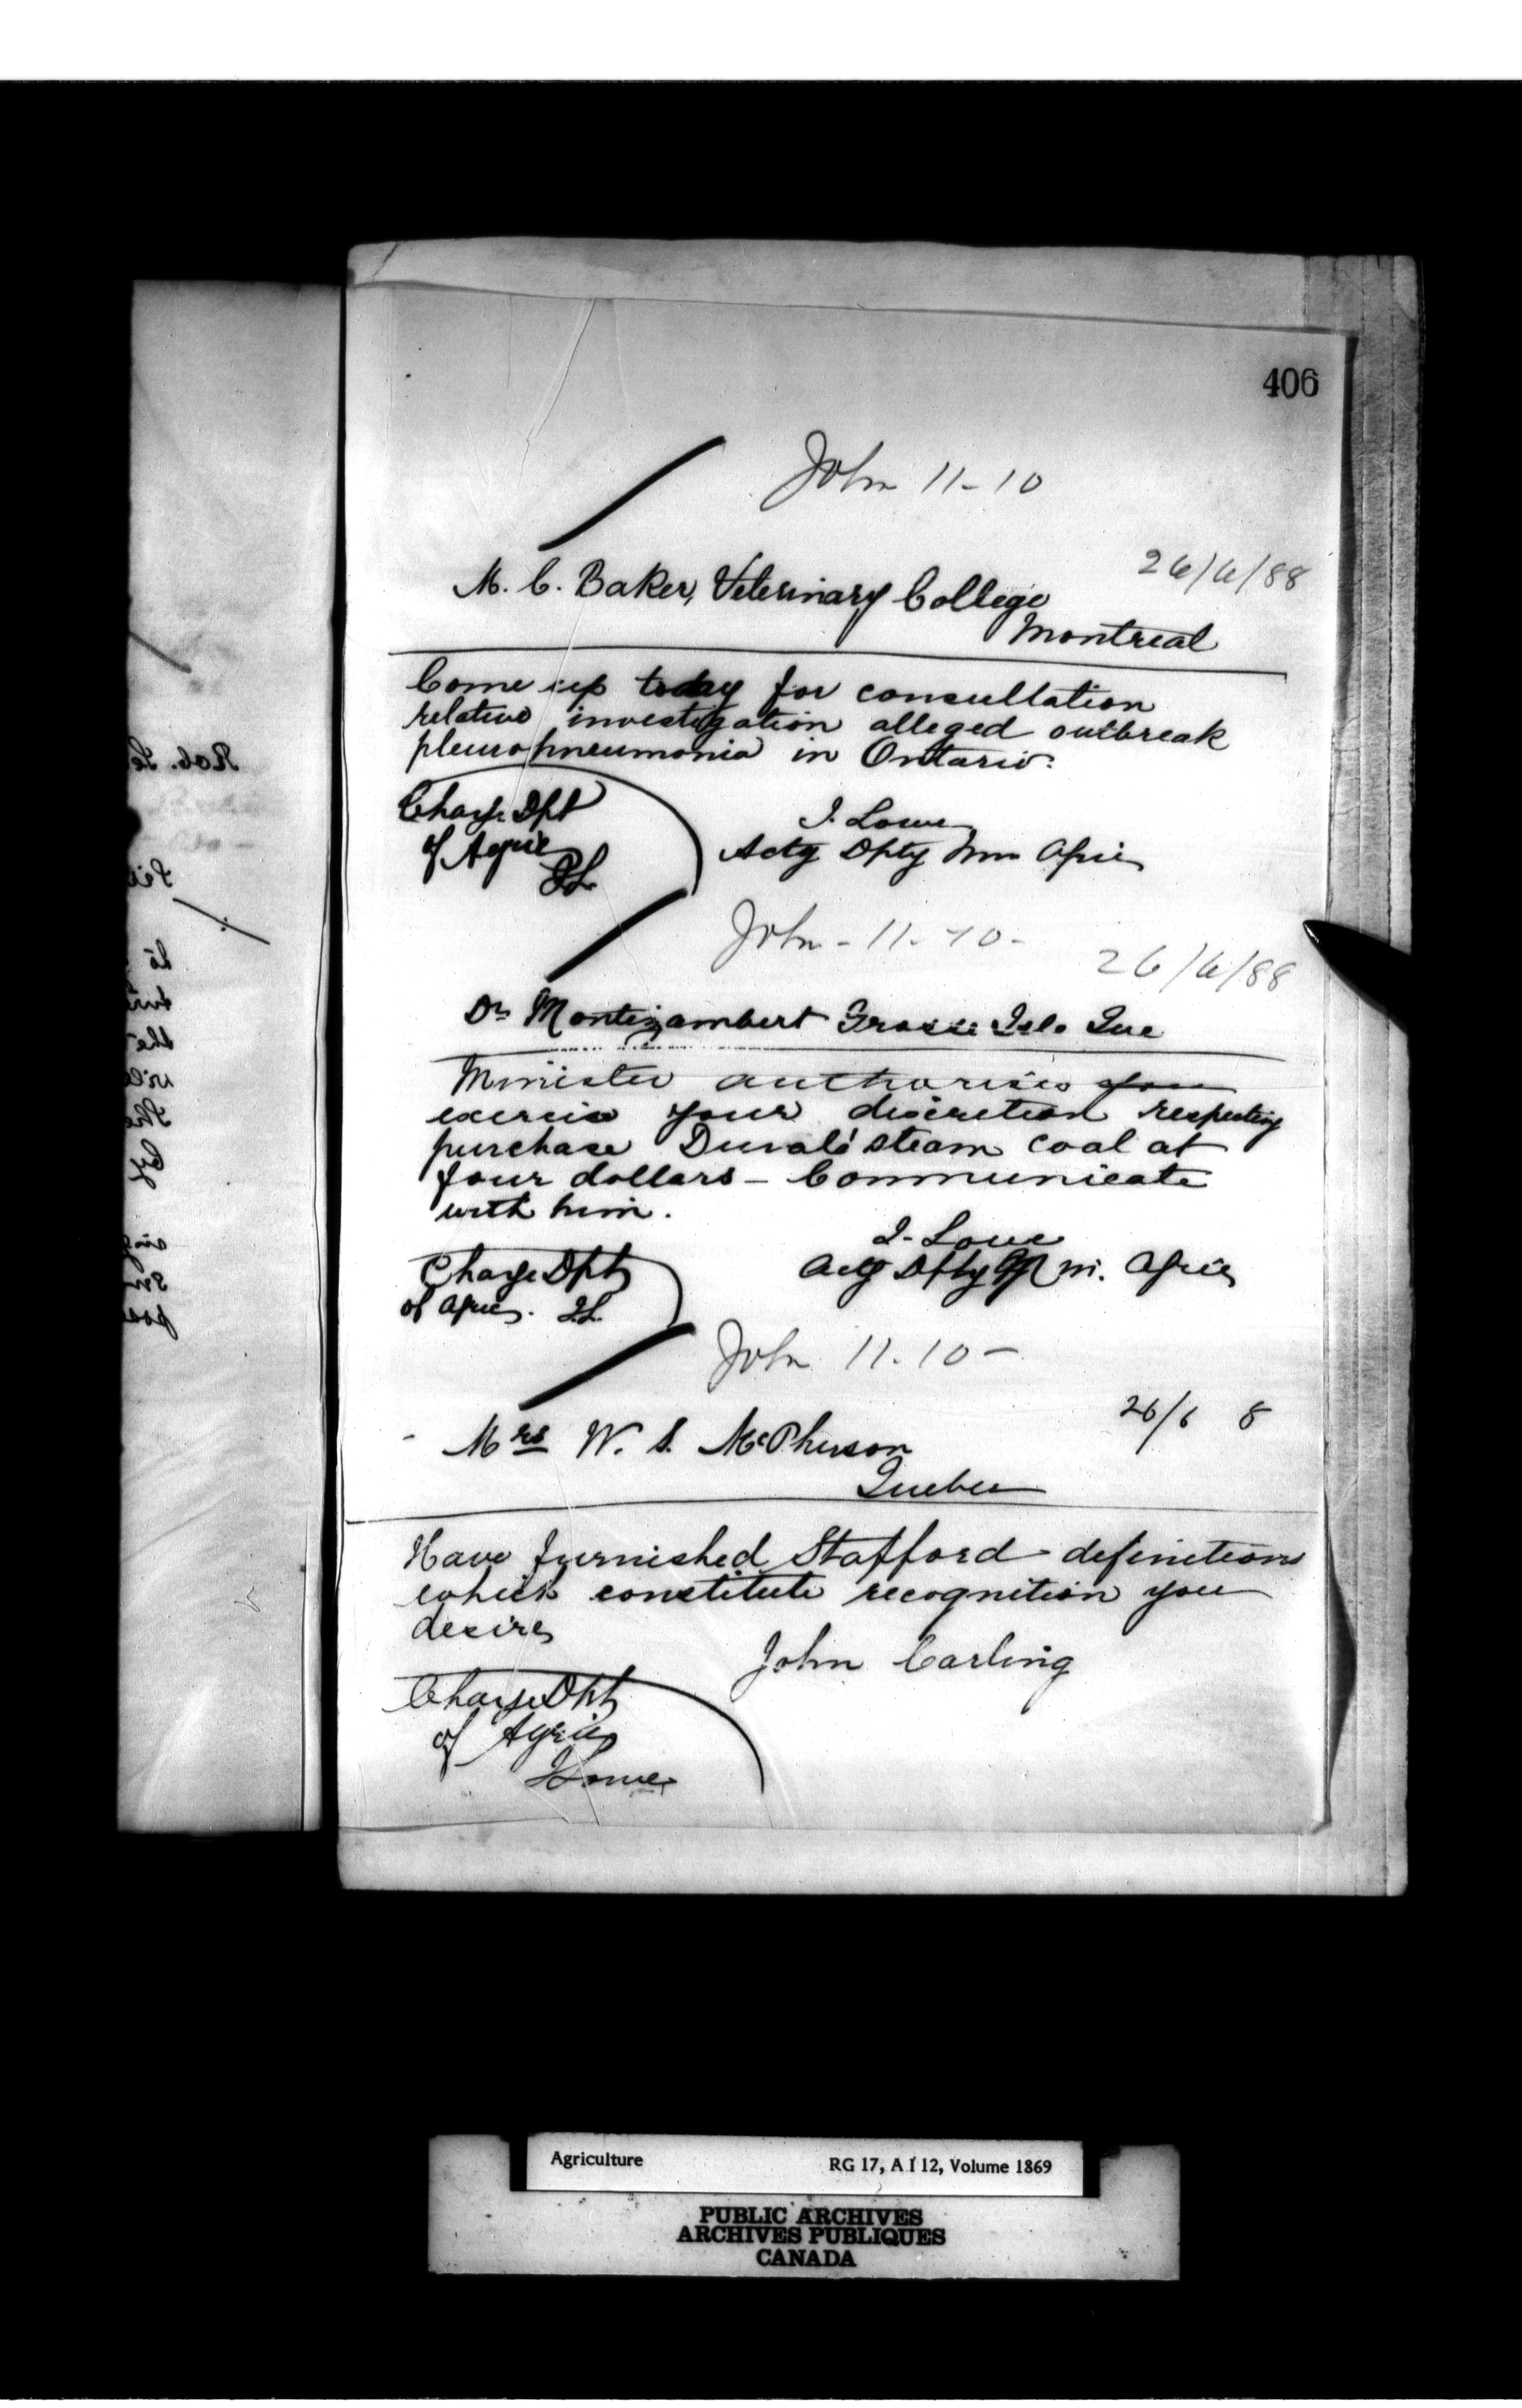 406
John 11-10
26/6/88
M. C. Baker, Veterinary College
Montreal
Come up today for consultation
relative investigation alleged outbreak
pleuropneumonia in Ontario.
Charge Dpt
of Agric
J. Lowe
Actg Dpty Min Agric
John - 11-10-
26/6/88
Dr Montizambert Grosse Isle Que
Minister authorises you
exercise your discretion respecting
purchase Duval's steam coal at
four dollars - Communicate
with him.
J. Lowe
Actg Dpty M. Agric
Charge Dpt
of Agric. J.L.
John 11.10-
26/6 8
Mrs W. S. McPherson
Quebec
Have furnished Stafford definitions
which constitute recognition you
desire
John Carling
Charge Dpt
of Agric
J Lowe
Agriculture RG 17, A I 12, Volume 1869
PUBLIC ARCHIVES
ARCHIVES PUBLIQUES
CANADA